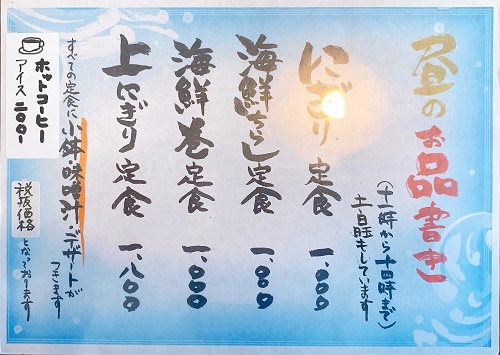 昼のお品書き
(十一時から十四時まで)
土日祝もしています
にぎり定食 一、〇〇〇
海鮮ちらし定食 一、〇〇〇
海鮮巻定食 一、〇〇〇
上にぎり定食 一、八〇〇
すべての定食に小鉢味噌汁・デザートが
つきます
税抜価格となっております
ホットコーヒー
アイス 二〇〇-